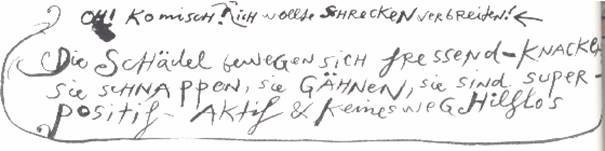 OH! Komisch! Ich wollte SCHRECKEN verbreiten! ←
Die Schädel bewegen sich fressend-KNACKEN
sie SCHNAPPEN, sie GÄHNEN, sie sind SUPER-
positif- Aktif & Keinesweg Hilflos